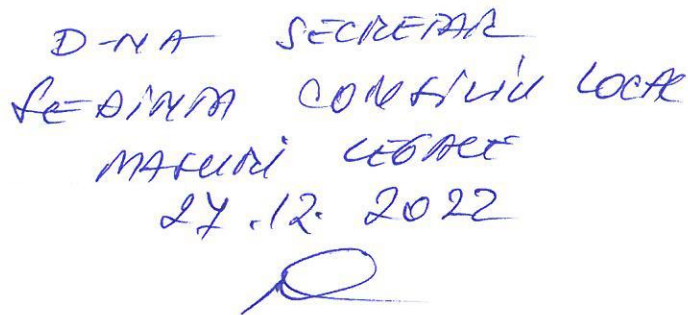 D-NA SECRETAR
ȘEDINȚA CONSILIU LOCAL
MASURI LEGALE
27.12.2022